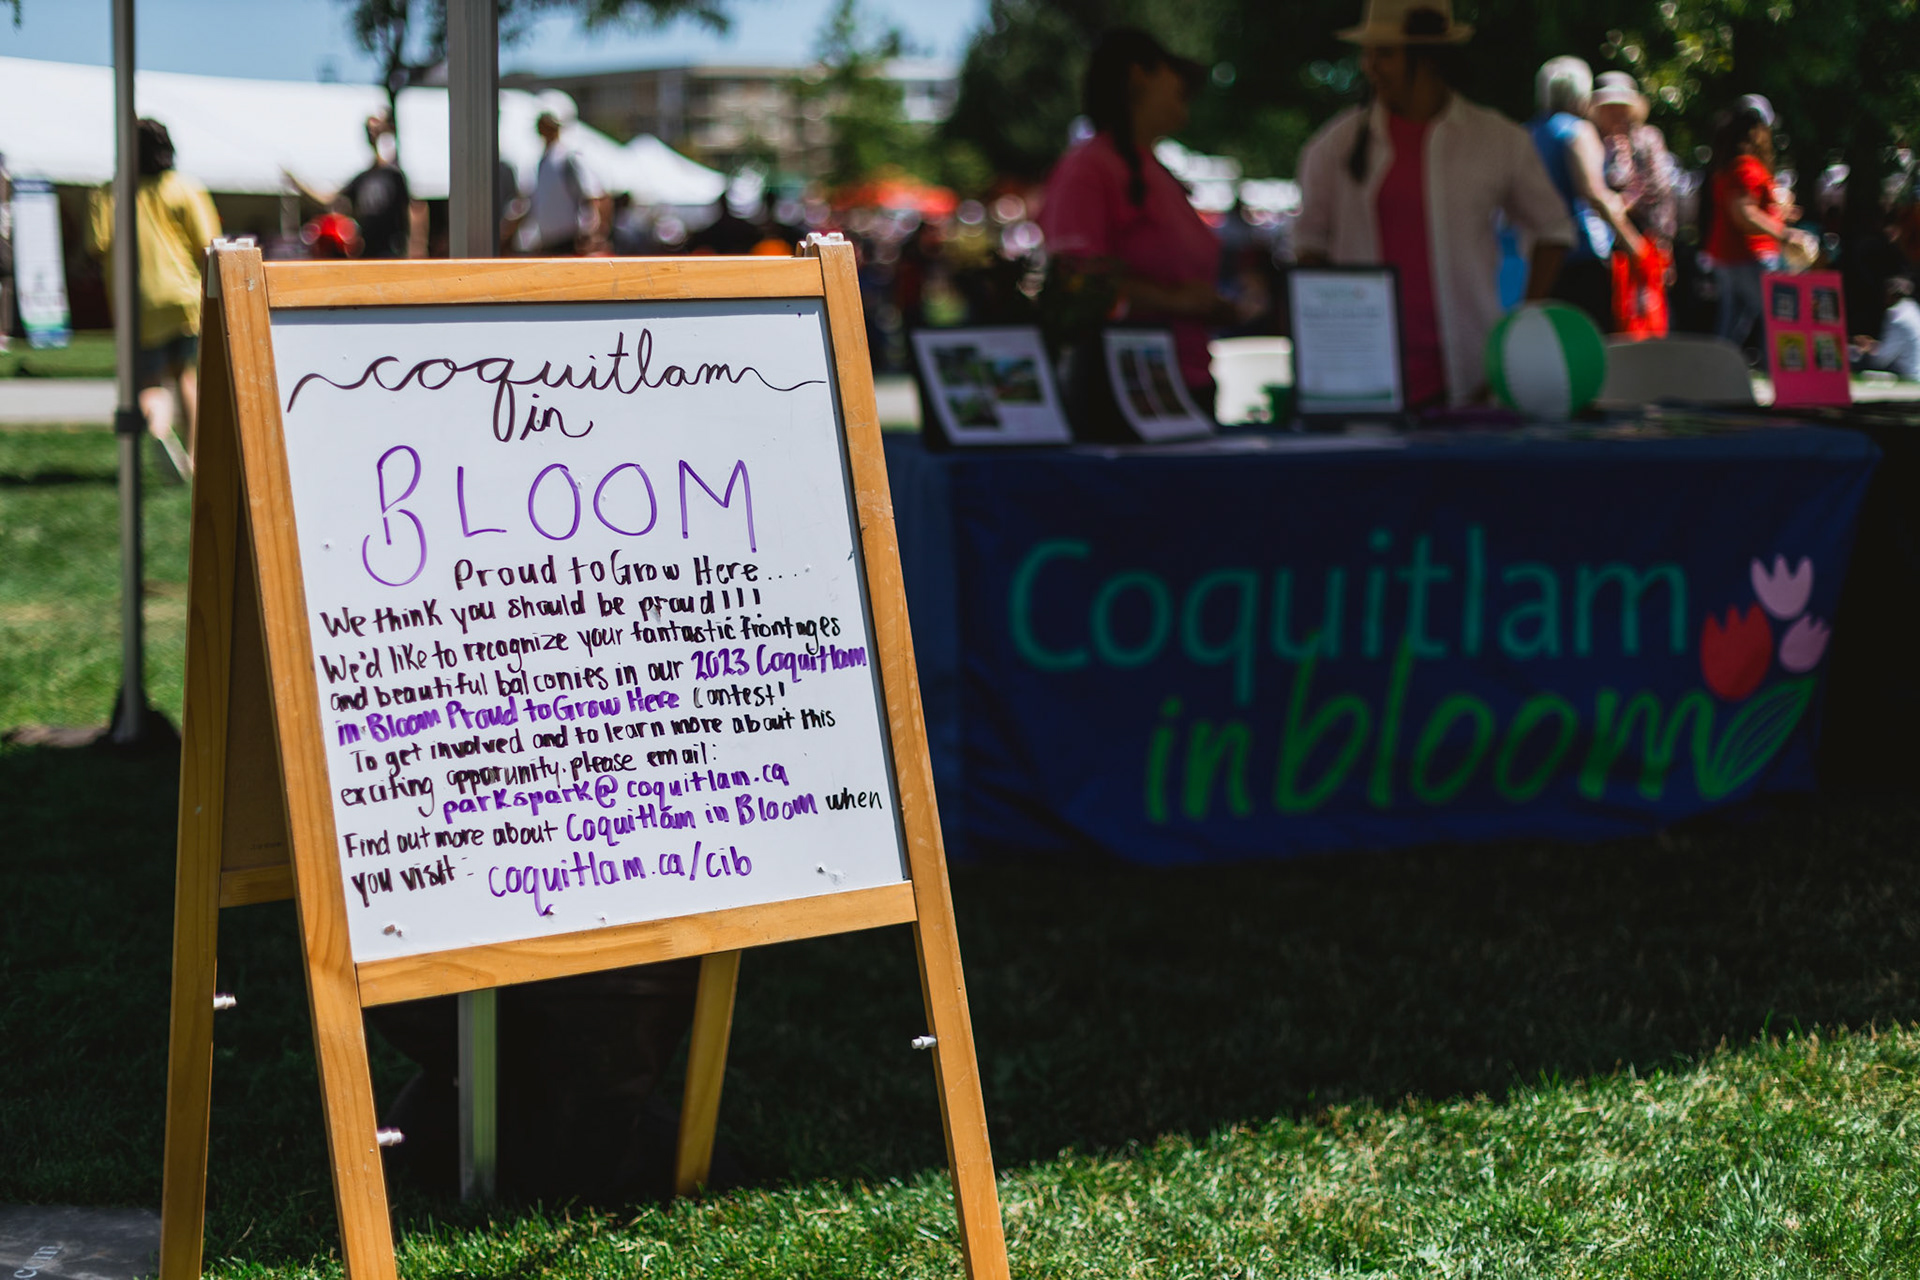 coquitlam
in
BLOOM
Proud to Grow Here....
We think you should be proud!!!
We'd like to recognize your fantastic frontages
and beautiful balconies in our 2023 Coquitlam
in Bloom Proud to Grow Here Contest!
To get involved and to learn more about this
exciting opporunity, please email:
parkspark@coquitlam.ca
Find out more about Coquitlam in Bloom when
you visit - coquitlam.ca/cib
Coquitlam
in bloom